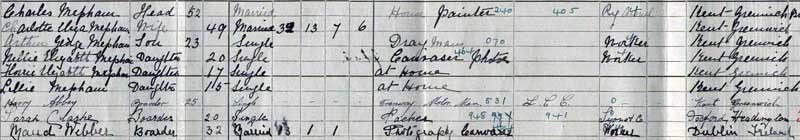 Charles Mepham Head 52 Married House Painter 240 405 Kent Greenwich
Charlotte Eliza Mepham Wife 49 Married 32 13 7 6 Kent Greenwich
Arthur George Mepham Son 23 Single Dray Man 070 Worker Kent Greenwich
Nellie Elizabeth Mepham Daughter 20 Single Canvaser Photos Worker Kent Greenwich
Florrie Elizabeth Mepham Daughter 17 Single at Home Kent Greenwich
Lillie Mepham Daughter 15 Single at Home Kent Greenwich
Harry Abbey Boarder 25 Single Tramway Motor Man 531 L.C.C. 0 Kent Greenwich
Sarah Clarke Boarder 20 Single Packer 941 Oxford Headington
Maud Webber Boarder 32 Married 13 1 1 Photography Canvaser Worker Dublin Ireland